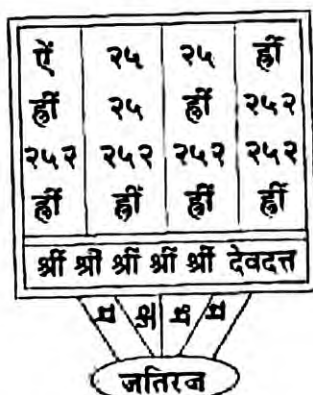 ऐं २५ २५ ह्रीं
ह्रीं २५ ह्रीं २५२
२५२ २५२ २५२ २५२
ह्रीं ह्रीं ह्रीं ह्रीं
श्रीं श्रीं श्रीं श्रीं श्रीं देवदत्त
जतिरज